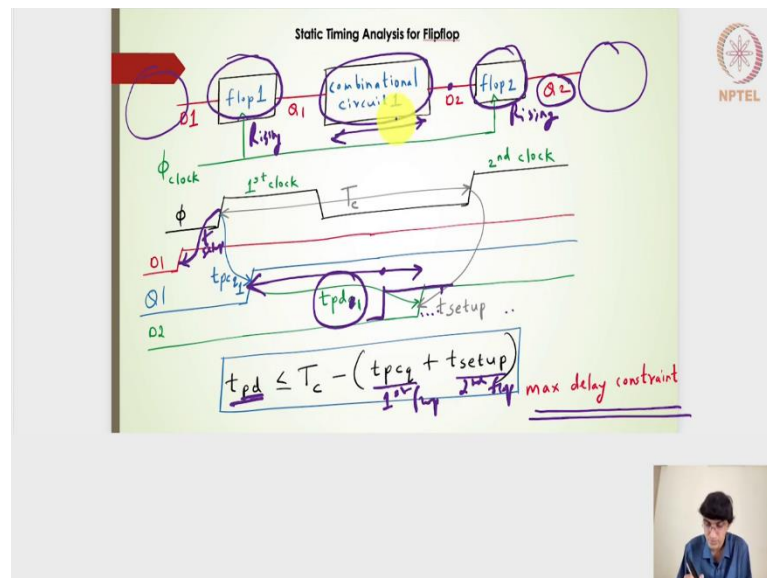 Static Timing Analysis for Flipflop
NPTEL
flop1
combinational
circuit 1
flop2
D1
Q1
D2
Q2
Rising
Rising
ϕclock
1st clock
2nd clock
Tc
ϕ
tsetup
D1
tpcq1
Q1
tpd1
tsetup
D2
tpd ≤ Tc - (tpcq + tsetup)
1st flop
2nd flop
max delay constraint